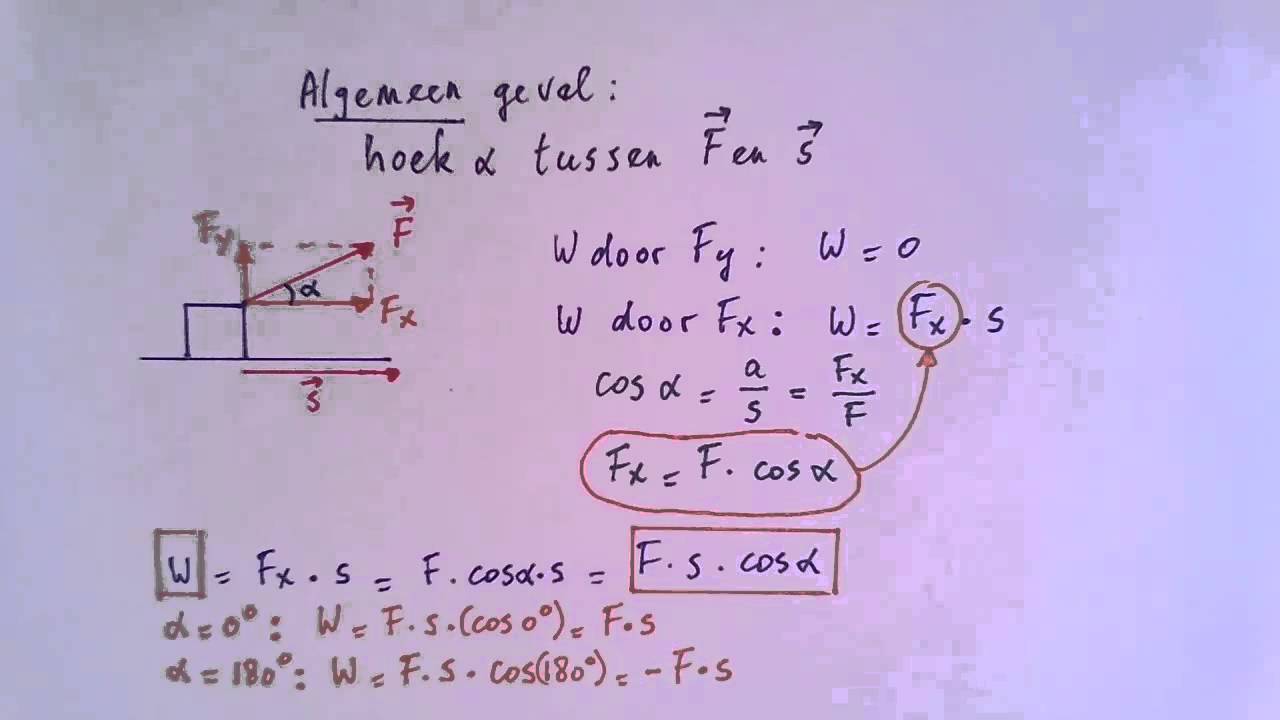 Algemeen geval:
hoek α tussen F⃗ en s⃗
F⃗
Fy
α
Fx
s⃗
W door Fy : W = 0
W door Fx : W = Fx · s
cos α = a/s = Fx/F
Fx = F · cos α
W = Fx · s = F · cosα · s = F · s · cosα
α = 0° : W = F · s · (cos 0°) = F · s
α = 180° : W = F · s · cos(180°) = - F · s